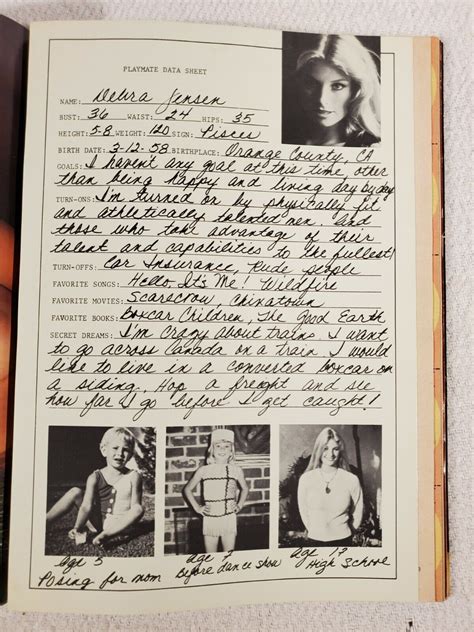 PLAYMATE DATA SHEET
NAME: Debra Jensen
BUST: 36 WAIST: 24 HIPS: 35
HEIGHT: 5-8 WEIGHT: 120 SIGN: Pisces
BIRTH DATE: 3-12-58 BIRTHPLACE: Orange County, CA
GOALS: I haven't any goal at this time other
than being happy and living day by day
TURN-ONS: I'm turned on by physically fit
and athletically talented men. And
those who take advantage of their
talent and capabilities to the fullest!
TURN-OFFS: Car Insurance, Rude people
FAVORITE SONGS: Hello, It's Me! Wildfire
FAVORITE MOVIES: Scarecrow, Chinatown
FAVORITE BOOKS: Boxcar Children, The Good Earth
SECRET DREAMS: I'm crazy about trains. I want
to go across Canada on a train. I would
like to live in a converted boxcar on
a siding. Hop a freight and see
how far I go before I get caught!
age 5
Posing for mom
age 7
Before dance show
age 17
High School